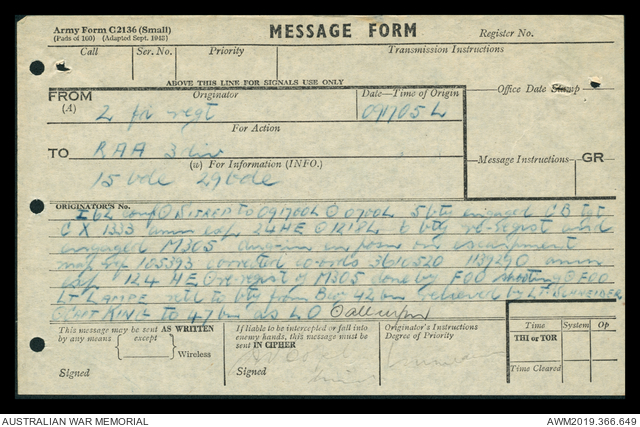 Army Form C2136 (Small)
(Pads of 100) (Adapted Sept. 1943)
MESSAGE FORM
Register No.
Call Ser. No. Priority Transmission Instructions
ABOVE THIS LINE FOR SIGNALS USE ONLY
FROM Originator Date—Time of Origin Office Date Stamp
(A) 2 fd regt 091705L
For Action
TO RAA 3 div
(w) For Information (INFO.) Message Instructions GR
15 bde 29 bde
ORIGINATOR'S No.
I 62 conf O SITREP TO 091700L O 0700L 5 bty engaged CB tgt
CX 1333 ammn exp 24 HE O 1212L 6 bty re-regist and
engaged M305 dug-in en posn on escarpment
map ref 185393 corrected co-ords 3610520 1139290 ammn
exp 124 HE O re-regist of M305 done by FOO shooting O FOO
LT LAMPE retd to bty from Bn 42 bn relieved by LT SCHNEIDER
O CAPT KING to 47 bn as LO O all infm
This message may be sent AS WRITTEN
by any means except
Wireless
Signed
If liable to be intercepted or fall into
enemy hands, this message must be
sent IN CIPHER
Signed
Originator's Instructions
Degree of Priority
Time System Op
THI or TOR
Time Cleared
AUSTRALIAN WAR MEMORIAL AWM2019.366.649